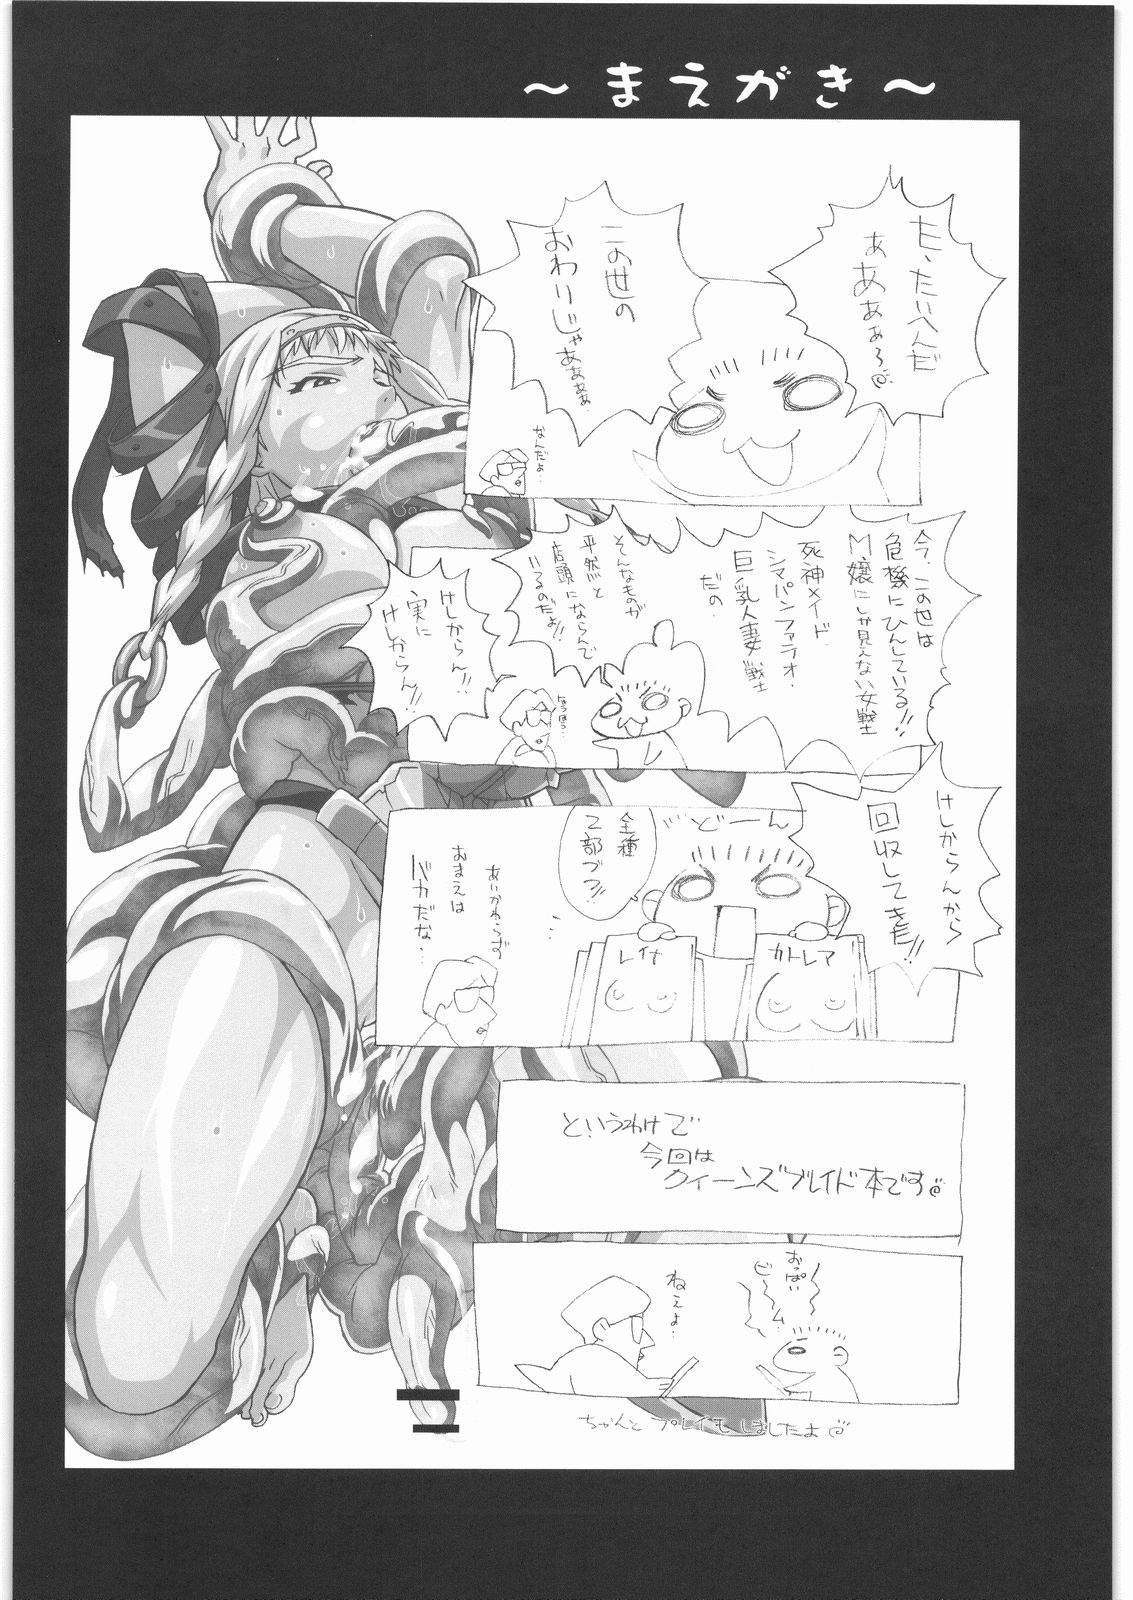 ～まえがき～
た、たいへんだ
あああぁぁ～
この世の
おわりじゃあぁぁぁぁ
なんだよ
今、この世は
危機にひんしている!!
M嬢にしか見えない女戦士
死神メイド、
シマパンファラオ、
巨乳人妻戦士
だの、
そんなものが
平然と
店頭にならんで
いるのだよ!!
けしからん!!
実に
けしからん!!
けしからんから
回収してきた!!
どーん
全種
2部づつ!!
レイナ
カトレア
あいかわらず
おまえは
バカだな…
というわけで
今回は
クィーンズブレイド本です
おっぱい
ビーム
ねぇよ
ちゃんと プレイも しましたよ